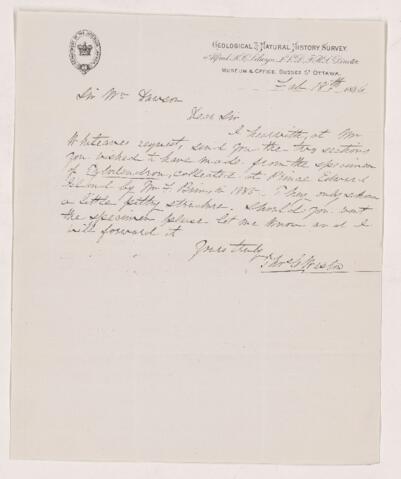 GEOLOGICAL & NATURAL HISTORY SURVEY.
Alfred R. C. Selwyn, L.L.D., F.R.S., Director
MUSEUM & OFFICE, SUSSEX ST OTTAWA.
Feb 18th 1886
Sir Wm Dawson
Dear Sir
I herewith at Mr
Whiteaves request, send you the two sections
you wished to have made from the specimen
of collected at Prince Edward
Island by Mr in 1885. They only show
a little pithy structure. Should you want
the specimen please let me know and I
will forward it
Yours truly
Thos C Weston